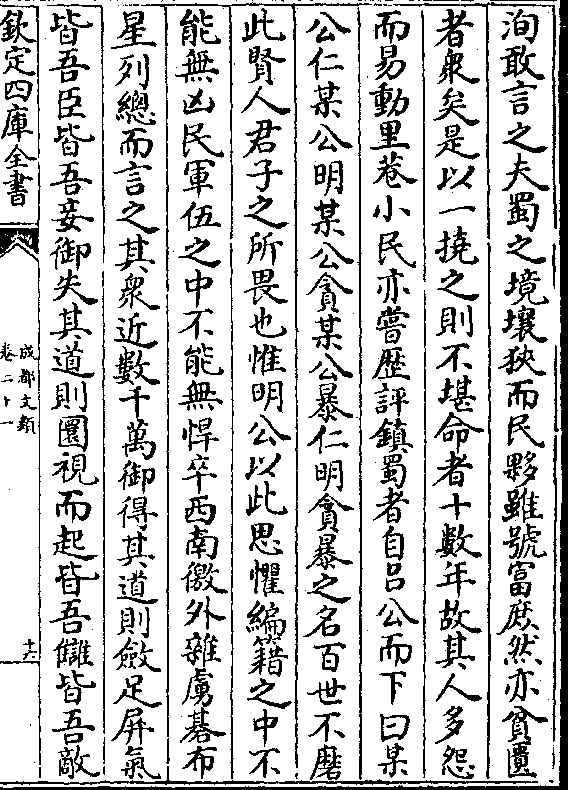 洵敢言之夫蜀之境壤狹而民夥雖號富庶然亦貧匱
者衆矣是以一撓之則不堪命者十數年故其人多怨
而易動里巷小民亦嘗歴評鎮蜀者自吕公而下曰某
公仁某公明某公貪某公暴仁明貪暴之名百世不磨
此賢人君子之所畏也惟明公以此思懼編籍之中不
能無凶民軍伍之中不能無悍卒西南徼外雜虜碁布
星列總而言之其衆近數千萬御得其道則斂足屏氣
皆吾臣皆吾妾御失其道則圜視而起皆吾讎皆吾敵
欽定四庫全書
成都文類
卷二十一
十六